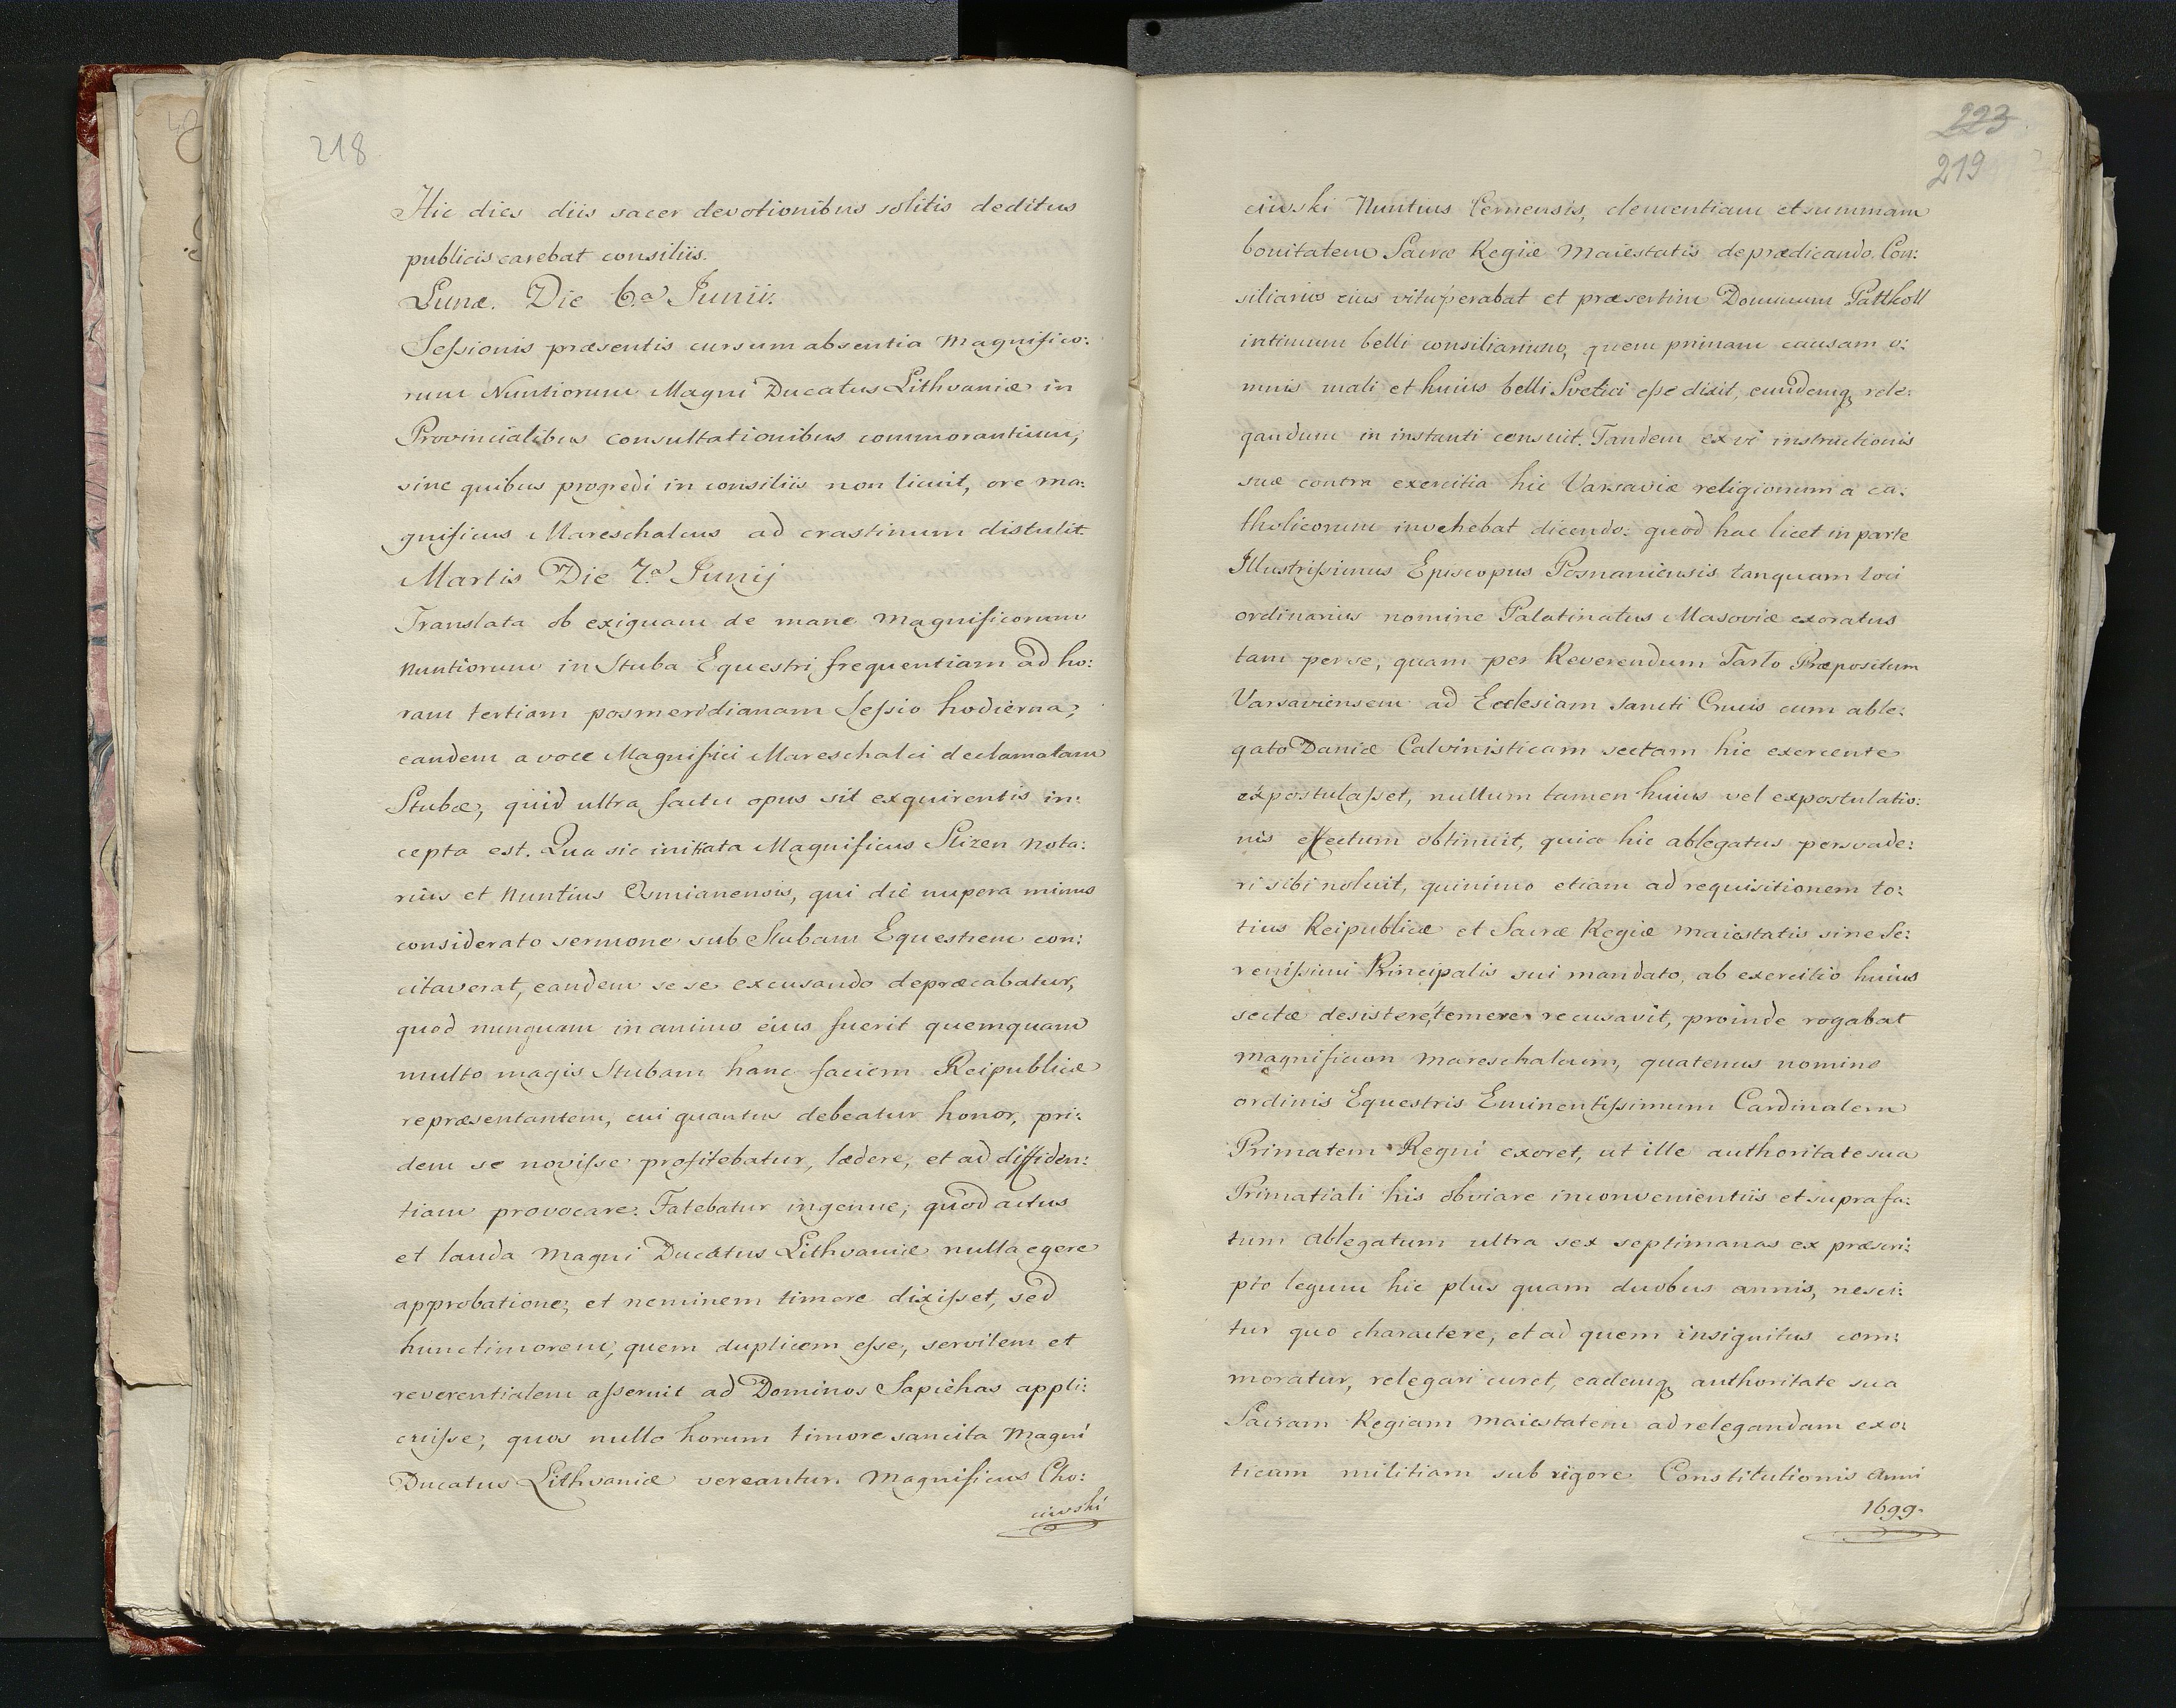 218
Hic dies diis sacer devotionibus solitis deditus
publicis carebat consiliis.
Lunæ. Die 6.a Junii.
Seſsionis præsentis cursum absentia Magnifico:
rum Nuntiorum Magni Ducatus Lithvaniæ in
Provincialibus consultationibus commorantium,
sine quibus progredi in consiliis non licuit, ore ma:
gnificus Mareschalcus ad crastinum distulit.
Martis Die 7.a Junij
Translata ob exiguam de mane Magnificorum
Nuntiorum in Stuba Equestri frequentiam ad ho:
ram tertiam posmeridianam Seſsio hodierna,
eandem a voce Magnifici Mareschalci declamatam
Stubæ, quid ultra factu opus sit exquirentis in:
cepta est. Qua sic initiata Magnificus Slizen Nota:
rius et Nuntius Osmianensis, qui die nupera minus
considerato sermone sub Stubam Equestrem con:
citaverat, eandem se se excusando depræcabatur,
quod nunquam in animo eius fuerit quemquam
multo magis Stubam hanc faciem Reipublicæ
repræsentantem, cui quantus debeatur honor, pri:
dem se noviſse profitebatur, lædere, et ad diffiden:
tiam provocare. Fatebatur ingenue, quod actus
et lauda Magni Ducatus Lithvaniæ nulla egere
approbatione, et neminem timere dixiſset, sed
hunc timorem, quem duplicem eſse, servilem et
reverentialem aſseruit ad Dominos Sapiehas appli:
cuiſse, quos nullo horum timore sancita Magni
Ducatus Lithvaniæ vereantur. Magnificus Cho:
ciwski
223
219
ciwski Nuntius Cernensis, clementiam et summam
bonitatem Sacræ Regiæ Maiestatis deprædicando. Con:
siliarios eius vituperabat et præsertim Dominum Pattkoll
intimum belli consiliarium, quem primam causam o:
mnis mali et huius belli Svetici eſse dixit, eundemq rele:
gandum in instanti censuit. Tandem ex vi instructionis
suæ contra exercitia hic Varsaviæ religionum a ca:
tholicorum invehebat dicendo: quod hac licet in parte
Illustriſsimus Episcopus Posnaniensis tanquam loci
ordinarius nomine Palatinatus Masoviæ exoratus
tam per se, quam per Reverendum Tarlo Præpositum
Varsaviensem ad Ecclesiam Sancti Crucis cum able:
gato Daniæ Calvinisticam sectam hic exercente
expostulaſset, nullum tamen huius vel expostulatio:
nis effectum obtinuit, quia hic ablegatus persvade:
ri sibi noluit, quinimo etiam ad requisitionem to:
tius Reipublicæ et Sacræ Regiæ Maiestatis sine Se:
reniſsimi Principalis sui mandato, ab exercitio huius
sectæ desistere, temere recusavit, proinde rogabat
Magnificum Mareschalcum, quatenus nomine
ordinis Equestris Eminentiſsimum Cardinalem
Primatem Regni exoret, ut ille authoritate sua
Primatiali his obviare inconvenientiis et suprafa:
tum Ablegatum ultra sex septimanas ex præscri:
pto legum hic plus quam duobus annis, nesci:
tur quo charactere, et ad quem insignitus com:
moratur, relegari curet, eademq authoritate sua
Sacram Regiam Maiestatem ad relegandam exo:
ticam militiam sub rigore Constitutionis Anni
1699.